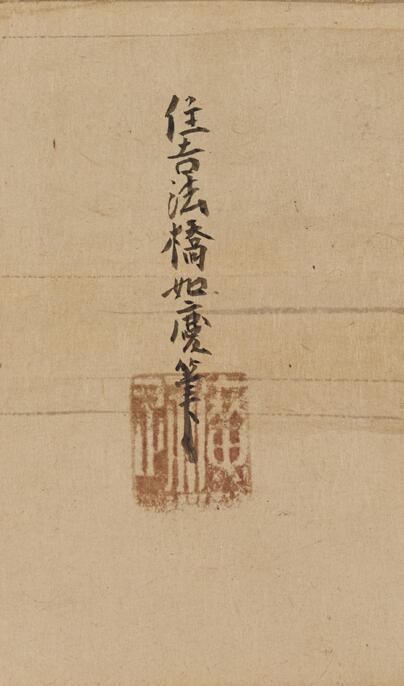 住吉法橋如慶筆